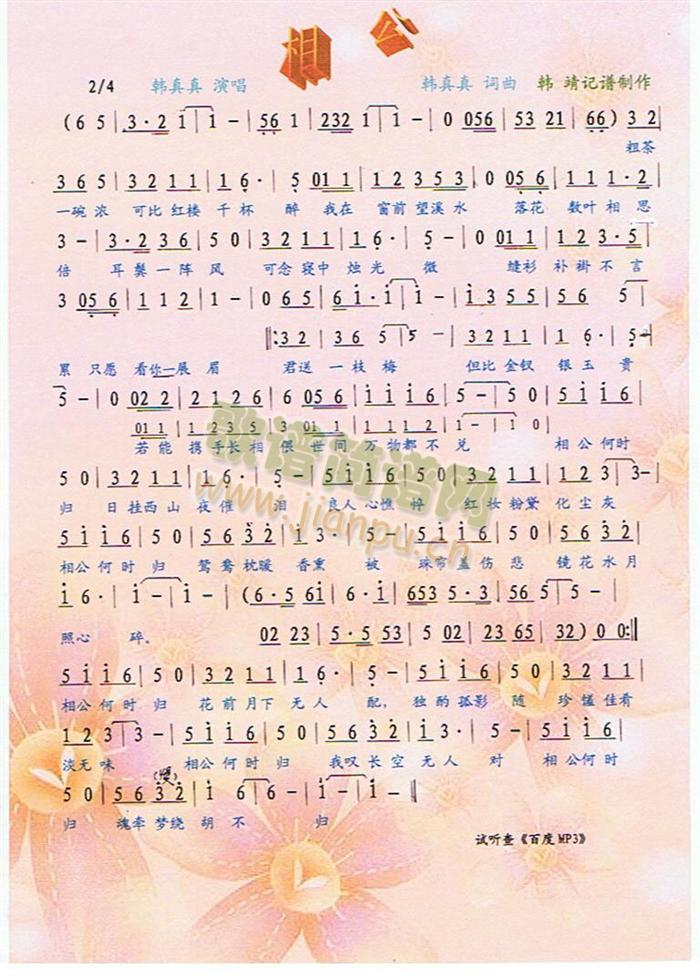 相公
2/4 韩真真 演唱 韩真真 词曲 韩 靖记谱制作
(6 5 | 3·2 1 1 | 1 - | 56 1 | 232 1 | 1 - | 0 056 | 53 21 | 66) 3 2 |
粗茶
3 6 5 | 3 2 1 1 | 6 · | 5 01 1 | 1 2 3 5 3 | 0 05 6 | 1 1 1·2 |
一碗浓 可比红楼 千杯 醉 我在 窗前望溪水 落花 数叶相思
3 - | 3·2 3 6 | 5 0 | 3 2 1 1 | 1 6· | 5 - | 0 01 1 | 1 2 3·5 |
倍 耳鬓一阵 风 可念寝中 烛光 微 缝衫 补褂不言
3 05 6 | 1 1 2 | 1 - | 0 6 5 | 5 6 5 | 6 1·1 | 1 - | 1 3 5 5 | 5 6 5 |
‖:3 2 | 3 6 5 | 5 - | 3 2 1 1 | 1 6· |
累 只愿 看你一展 眉 君送 一枝梅 但比金钗 银玉贵
5 - | 0 02 2 | 2 1 2 6 | 6 05 6 | 1 1 1 6 | 5 - | 5 0 | 5 1 1 6 |
01 1 | 1 2 3 5 | 3 01 1 | 1 1 1 2 |
若能 携手长相 偎 世间 万物都不 兑 相公何时
5 0 | 3 2 1 1 | 1 6· | 5 - | 5 1 1 6 | 5 0 | 3 2 1 1 | 1 2 3 | 3 - |
归 日挂西山 夜催 泪 良人心憔 悴 红妆粉黛 化尘灰
5 1 1 6 | 5 0 | 5 6 3 2 | 2 1 6 | 1 3· | 5 - | 5 1 1 6 | 5 0 | 5 6 3 2 |
相公何时归 鸳鸯枕暖 香熏 被 珠帘盖伤悲 镜花水月
1 6· | 1 - | 1 - | (6·5 61 | 1 6· | 653 5·3 | 56 5 | 5 - |
照心 碎. 02 23 | 5·5 53 | 5 02 | 23 65 | 32) 0 0:‖
5 1 1 6 | 5 0 | 3 2 1 1 | 1 6· | 5 - | 5 1 1 6 | 5 0 | 3 2 1 1 |
相公何时归 花前月下 无人 配, 独酌孤影 随 珍馐佳肴
1 2 3 | 3 - | 5 1 1 6 | 5 0 | 5 6 3 2 | 1 3· | 5 - | 5 1 1 6 |
淡无味 相公何时归 我叹长空 无人 对 相公何时
(慢)
5 0 | 5 6 3 2 | 2 1 6 | 6 - | 1 - | 1 - ‖
归 魂牵梦绕 胡不 归
试听查《百度MP3》
歌谱简谱网
www.jianpu.cn